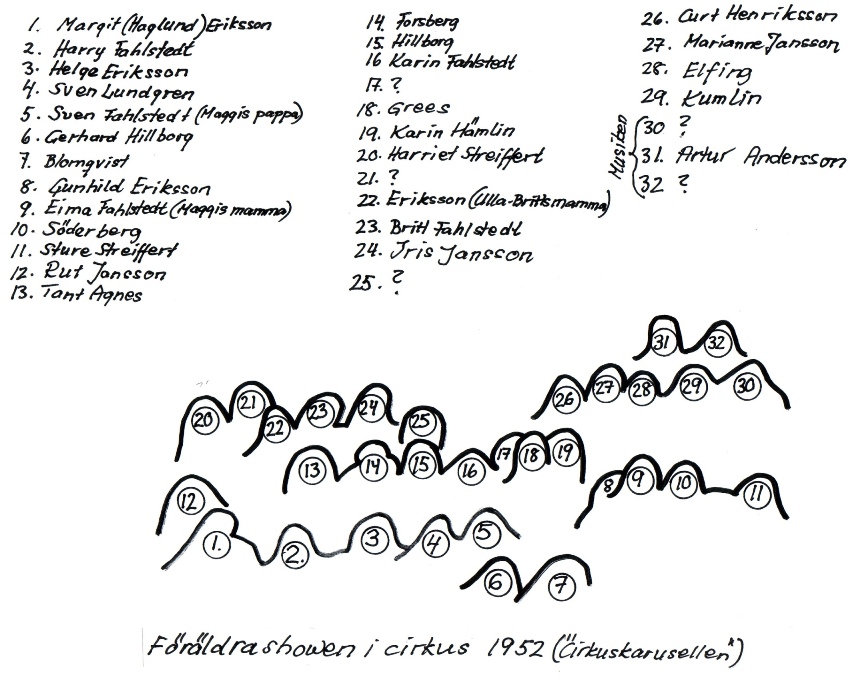 1. Margit (Haglund) Eriksson
2. Harry Fahlstedt
3. Helge Eriksson
4. Sven Lundgren
5. Sven Fahlstedt (Maggis pappa)
6. Gerhard Hillborg
7. Blomqvist
8. Gunhild Eriksson
9. Eima Fahlstedt (Maggis mamma)
10. Söderberg
11. Sture Streiffert
12. Rut Jansson
13. Tant Agnes
14. Forsberg
15. Hillborg
16 Karin Fahlstedt
17. ?
18. Grees
19. Karin Hämlin
20. Harriet Streiffert
21. ?
22. Eriksson (Ulla-Britts mamma)
23. Britt Fahlstedt
24. Iris Jansson
25. ?
26. Curt Henriksson
27. Marianne Jansson
28. Elfing
29. Kumlin
Musiken
30 ?
31. Artur Andersson
32 ?
31 32
26 27 28 29 30
20 21 22 23 24 25
13 14 15 16 17 18 19
8 9 10 11
12
1. 2. 3 4 5
6 7
Föräldrashowen i cirkus 1952 ("Cirkuskarusellen")